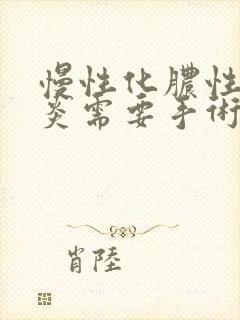 慢性化膿性
炎需要手術
肖陸